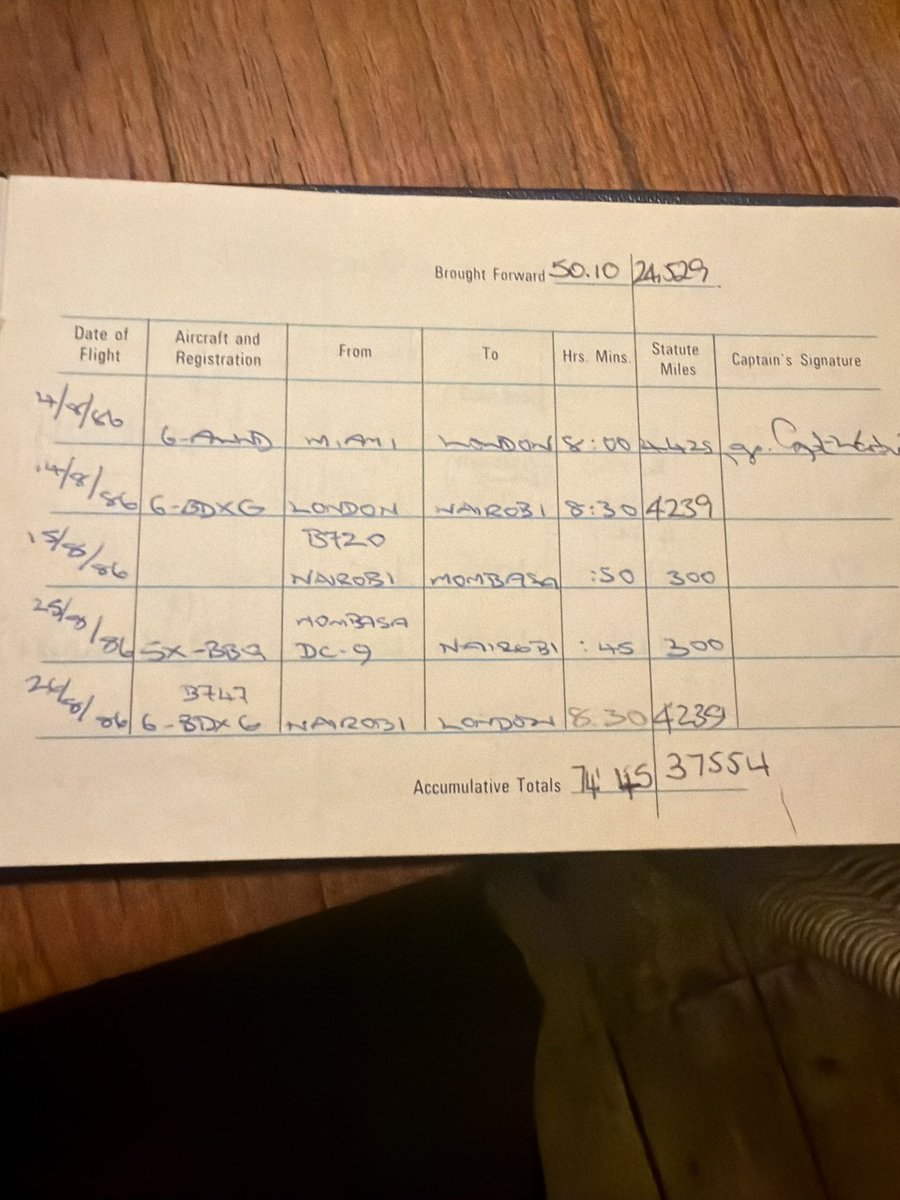 Brought Forward 50.10 24,529
Date of Flight Aircraft and Registration From To Hrs. Mins. Statute Miles Captain's Signature
4/8/86 G-AWND MIAMI LONDON 8:00 4425
14/8/86 G-BDXG LONDON NAIROBI 8:30 4239
B720
15/8/86 NAIROBI MOMBASA :50 300
MOMBASA
25/8/86 5X-BBQ DC-9 NAIROBI :45 300
B747
26/8/86 G-BDXG NAIROBI LONDON 8.30 4239
Accumulative Totals 74 45 37554